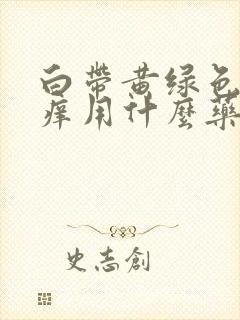 白帶黄绿色
痒用什麼藥
史志創